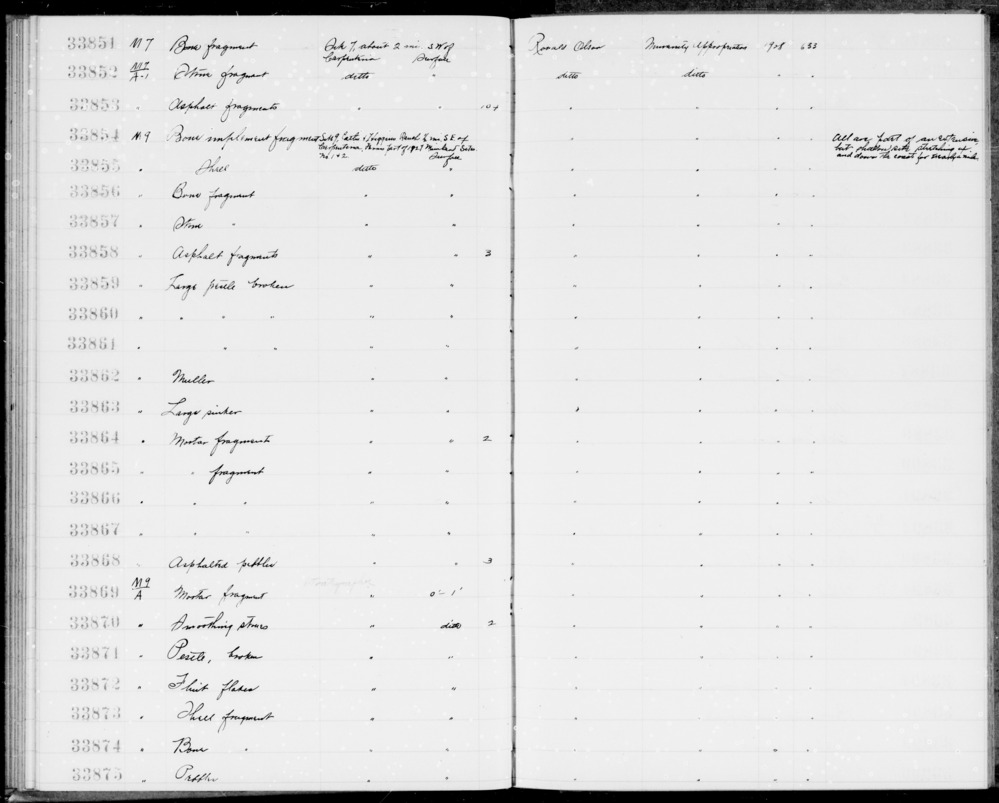 33851 M7 Bone fragment about 2 mi. S.W of Carpinteria Surface Ronald Olson University Appropriation 1928 633
33852 M7/A-1 Stone fragment ditto " ditto ditto " "
33853 " Asphalt fragments " " 10+ " " " "
33854 M9 Bone implement fragment Ranch ½ mi. S.E of Carpinteria. Surface No 1+2 " " " " All are part of an extensive, but shallow site stretching up and down the coast for nearly a mile.
33855 " Shell ditto " " " " "
33856 " Bone fragment " " " " " "
33857 " Stone " " " " " " "
33858 " Asphalt fragments " " 3 " " " "
33859 " Large pestle broken " " " " " "
33860 " " " " " " " " " "
33861 " " " " " " " " "
33862 " Muller " " " " " "
33863 " Large sinker " " " " " "
33864 " Mortar fragments " " 2 " " " "
33865 " " fragment " " " " " "
33866 " " " " " " " " "
33867 " " " " " " " " "
33868 " Asphalted pebbles " " 3 " " " "
33869 M9/A Mortar fragment " 0'-1' " " " "
33870 " Smoothing stones " ditto 2 " " " "
33871 " Pestle, broken " " " " " "
33872 " Flint flakes " " " " " "
33873 " Shell fragment " " " " " "
33874 " Bone " " " " " " "
33875 " Pebbles " " " " " "